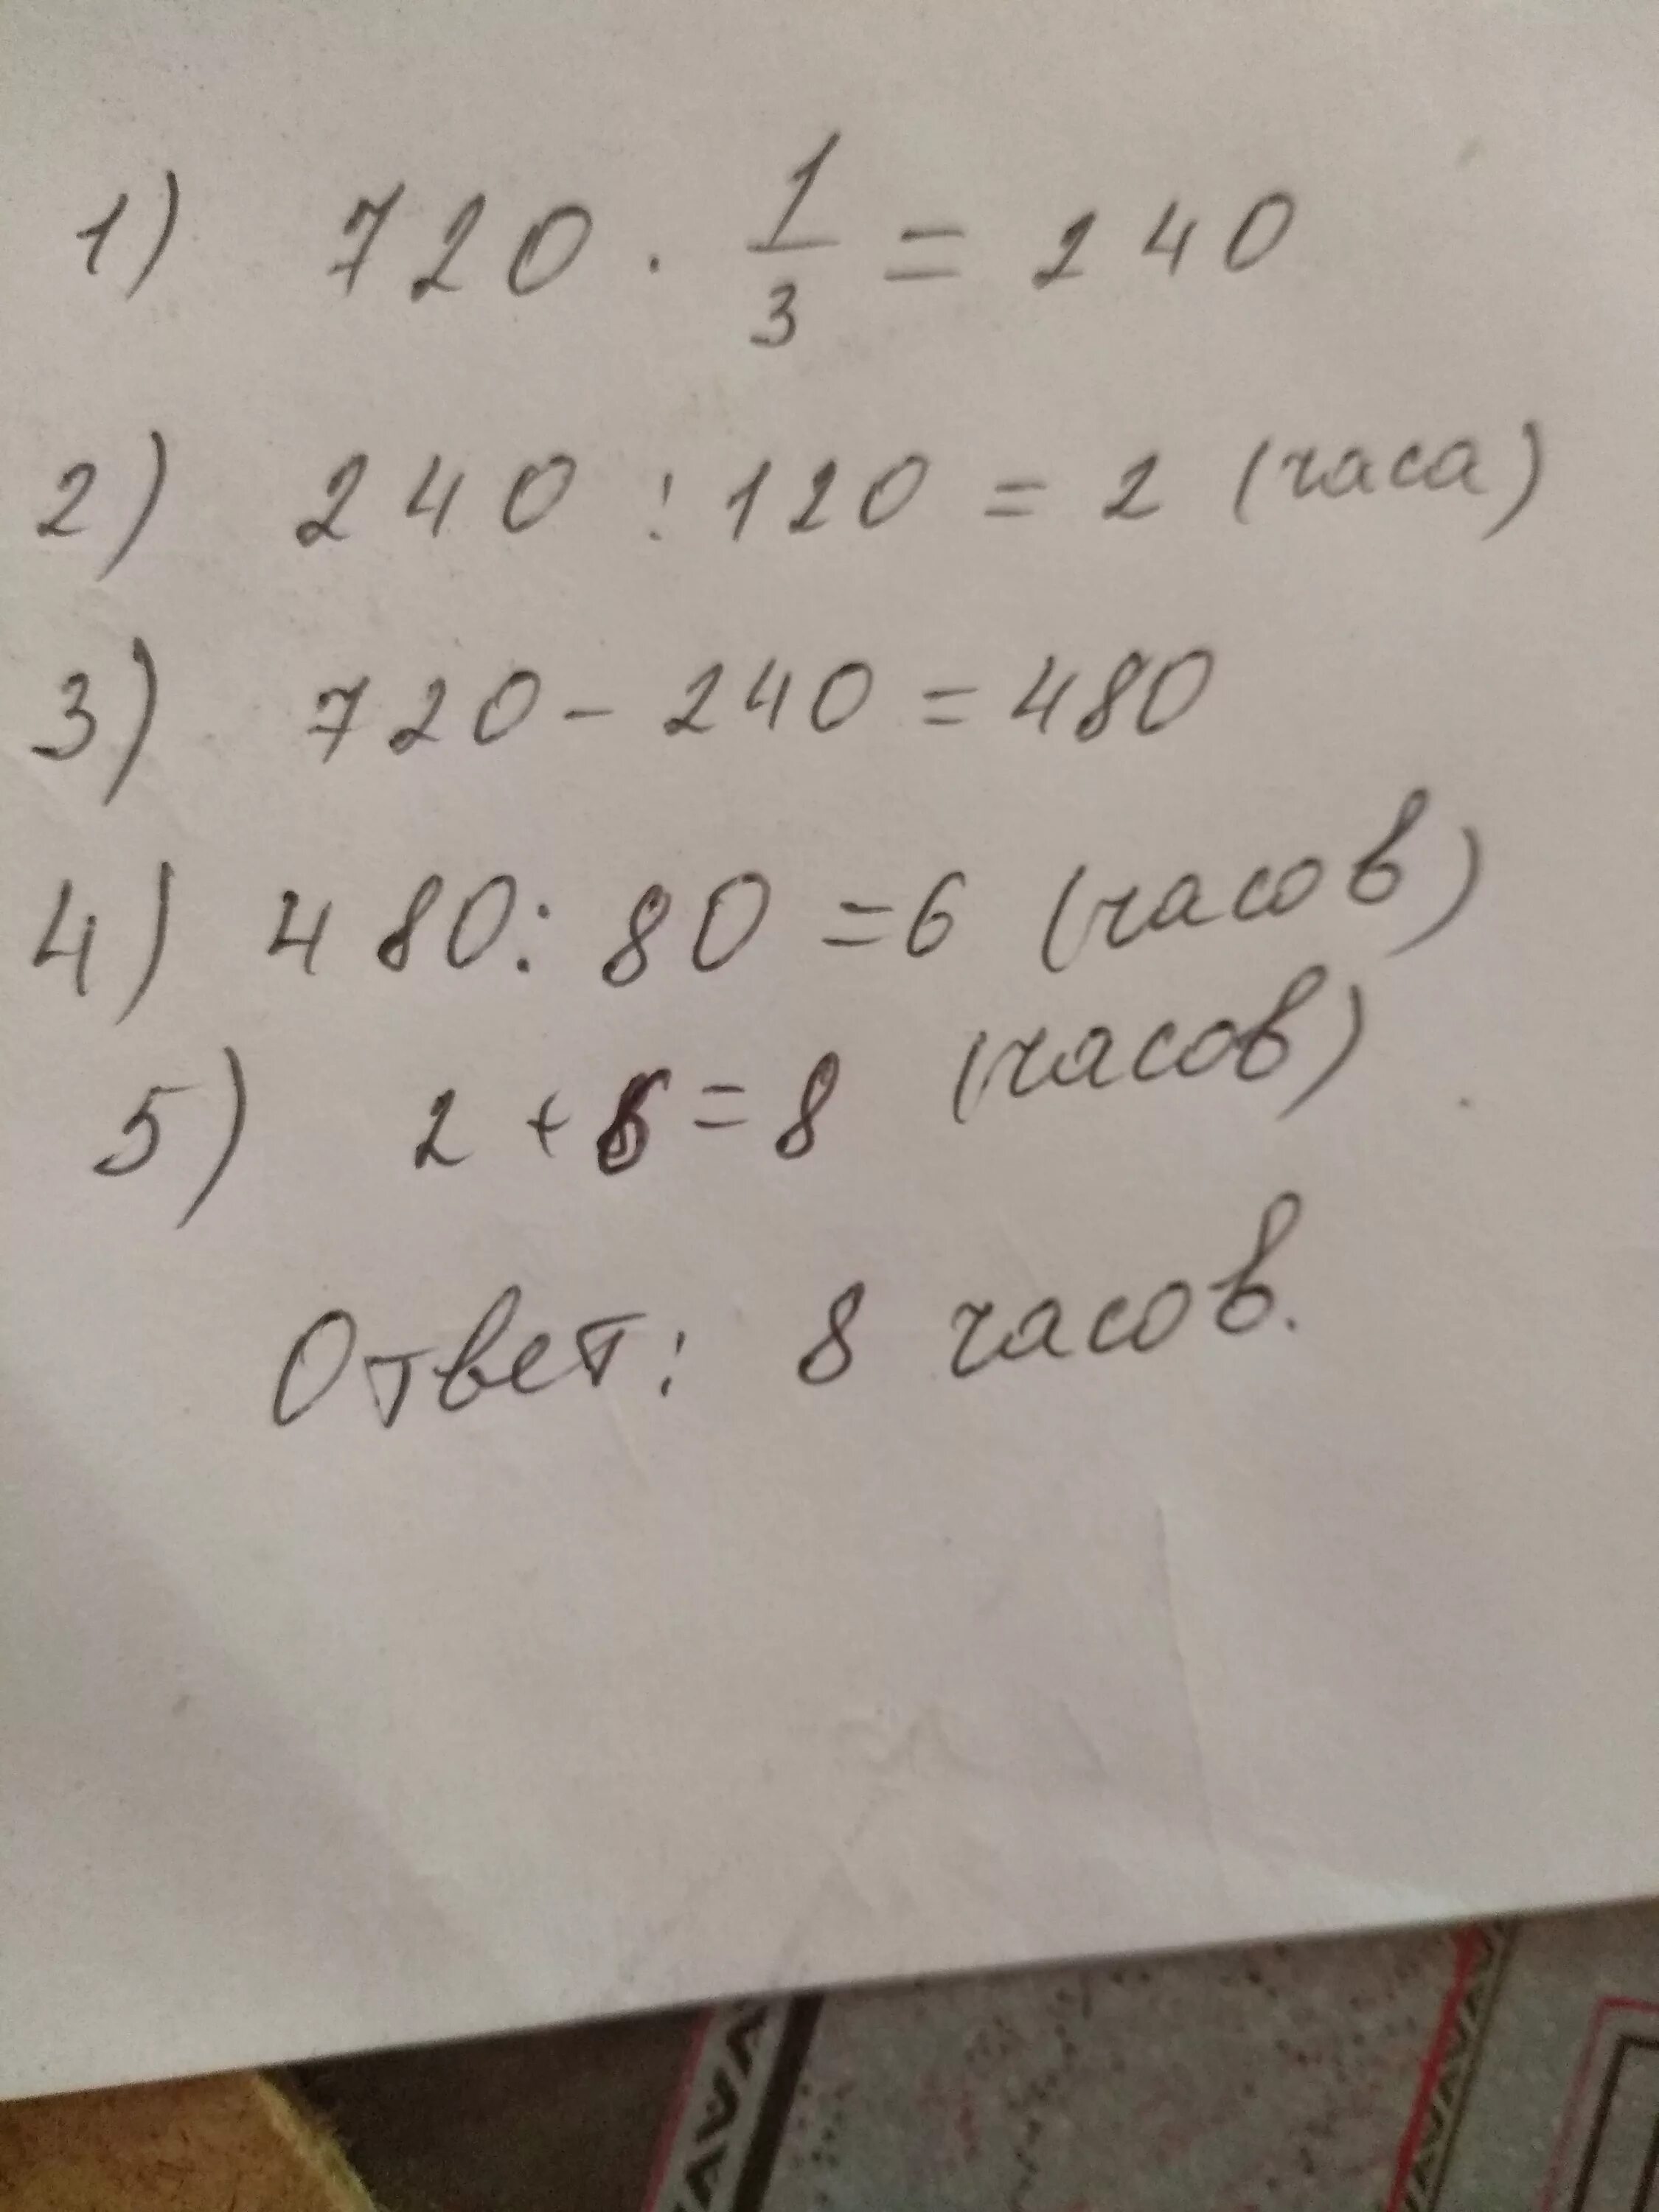 1) 720 · 1/3 = 240
2) 240 : 120 = 2 (часа)
3) 720 - 240 = 480
4) 480 : 80 = 6 (часов)
5) 2 + 6 = 8 (часов)
Ответ: 8 часов.